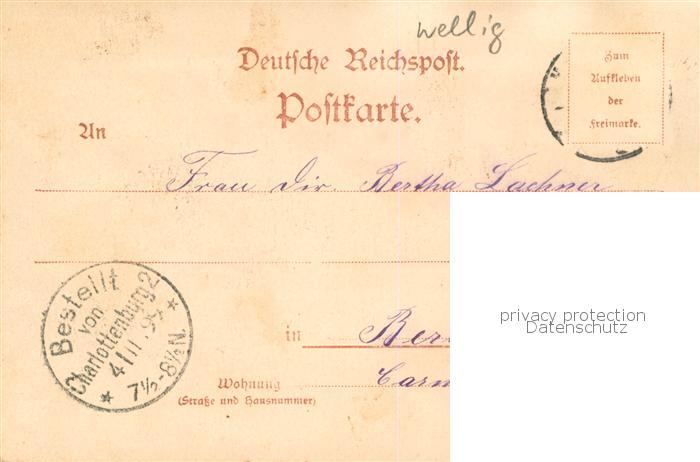 wellig
Deutsche Reichspost.
Postkarte.
Zum
Aufkleben
der
Freimarke.
An
Frau Dir. Bertha Lachner
Bestellt
von
Charlottenburg 2
4/11.95
7½-8½N.
privacy protection
Datenschutz
in
Wohnung
(Straße und Hausnummer)